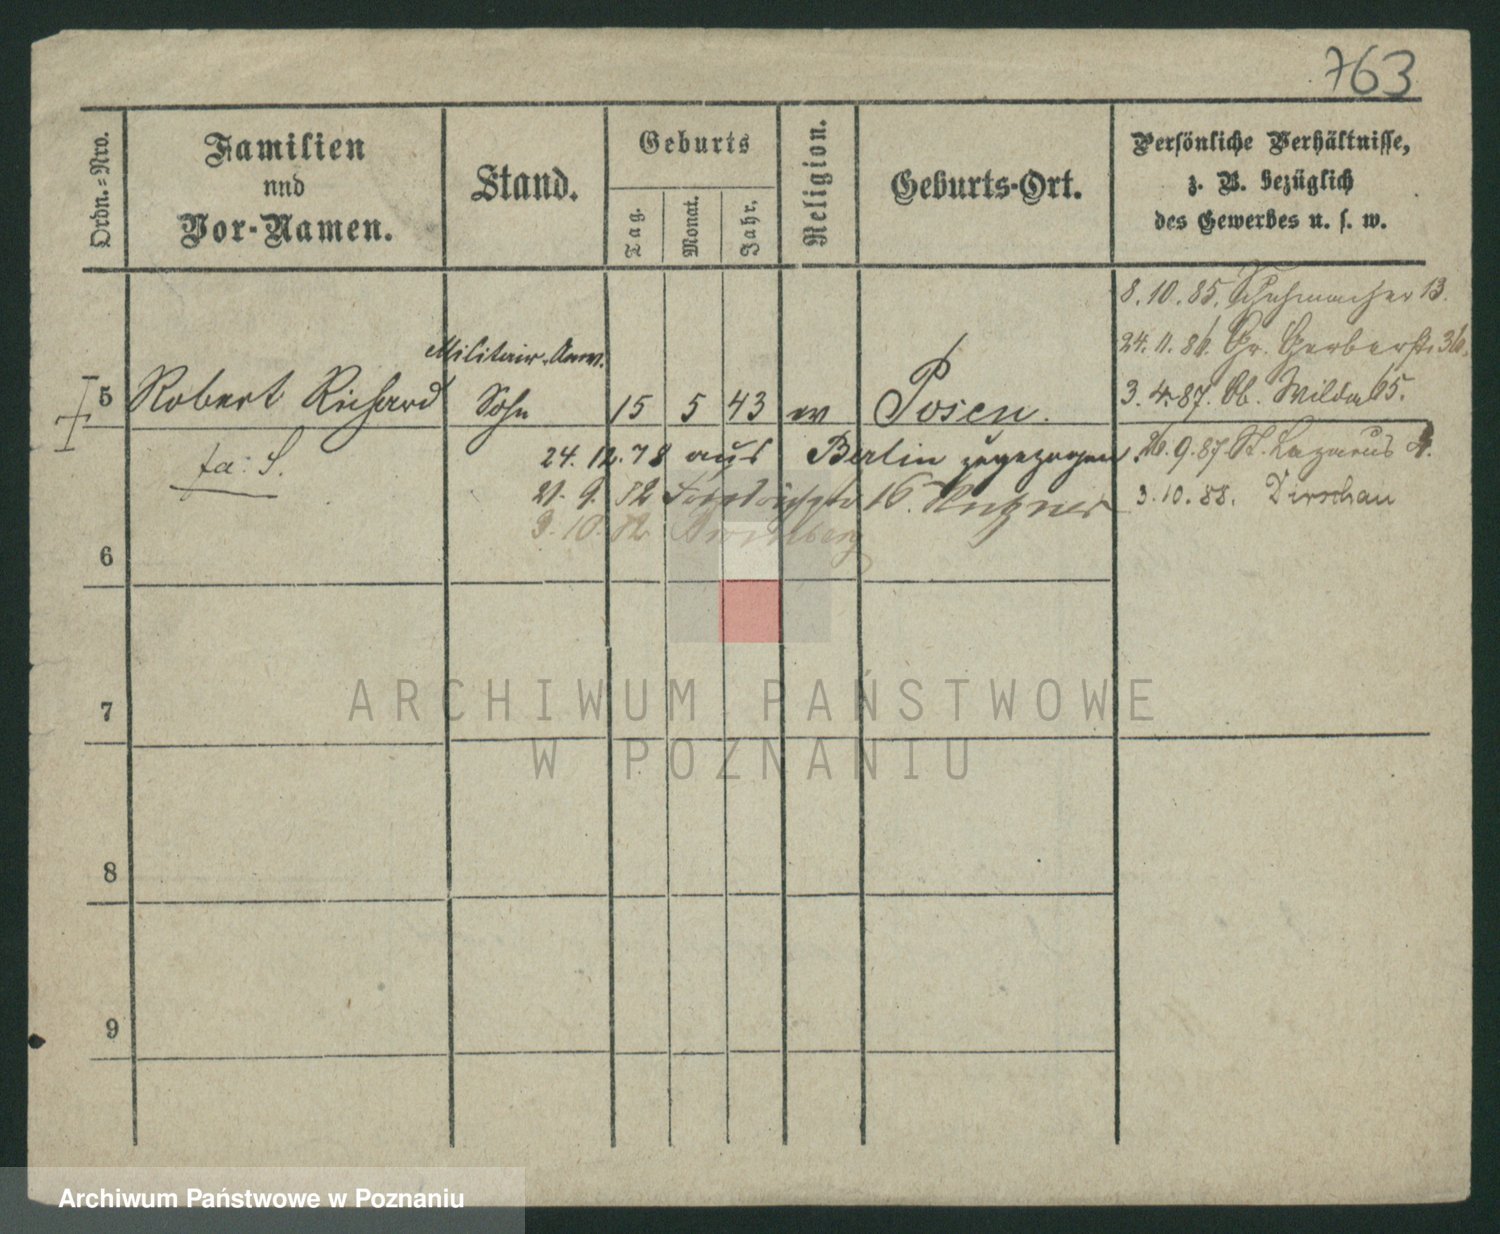 763
Ordn.-Nro.
Familien
und
Vor-Namen.
Stand.
Geburts
Tag.
Monat.
Jahr.
Religion.
Geburts-Ort.
Persönliche Verhältnisse,
z. B. bezüglich
des Gewerbes u. s. w.
8.10.85. Schuhmacher 13.
24.11.86. Gr. Gerberstr. 36.
3.4.87. Ob. Wilda 65.
Militair-Anw.
5 Robert Richard Sohn 15 5 43 ev Posen.
24.12.78 aus Berlin zugezogen.
26.9.87 St. Lazarus
fa: S.
21.9.82 16.
3.10.88. Dirschau
3.10.82 Bromberg
6
7
8
9
ARCHIWUM PAŃSTWOWE
W POZNANIU
Archiwum Państwowe w Poznaniu